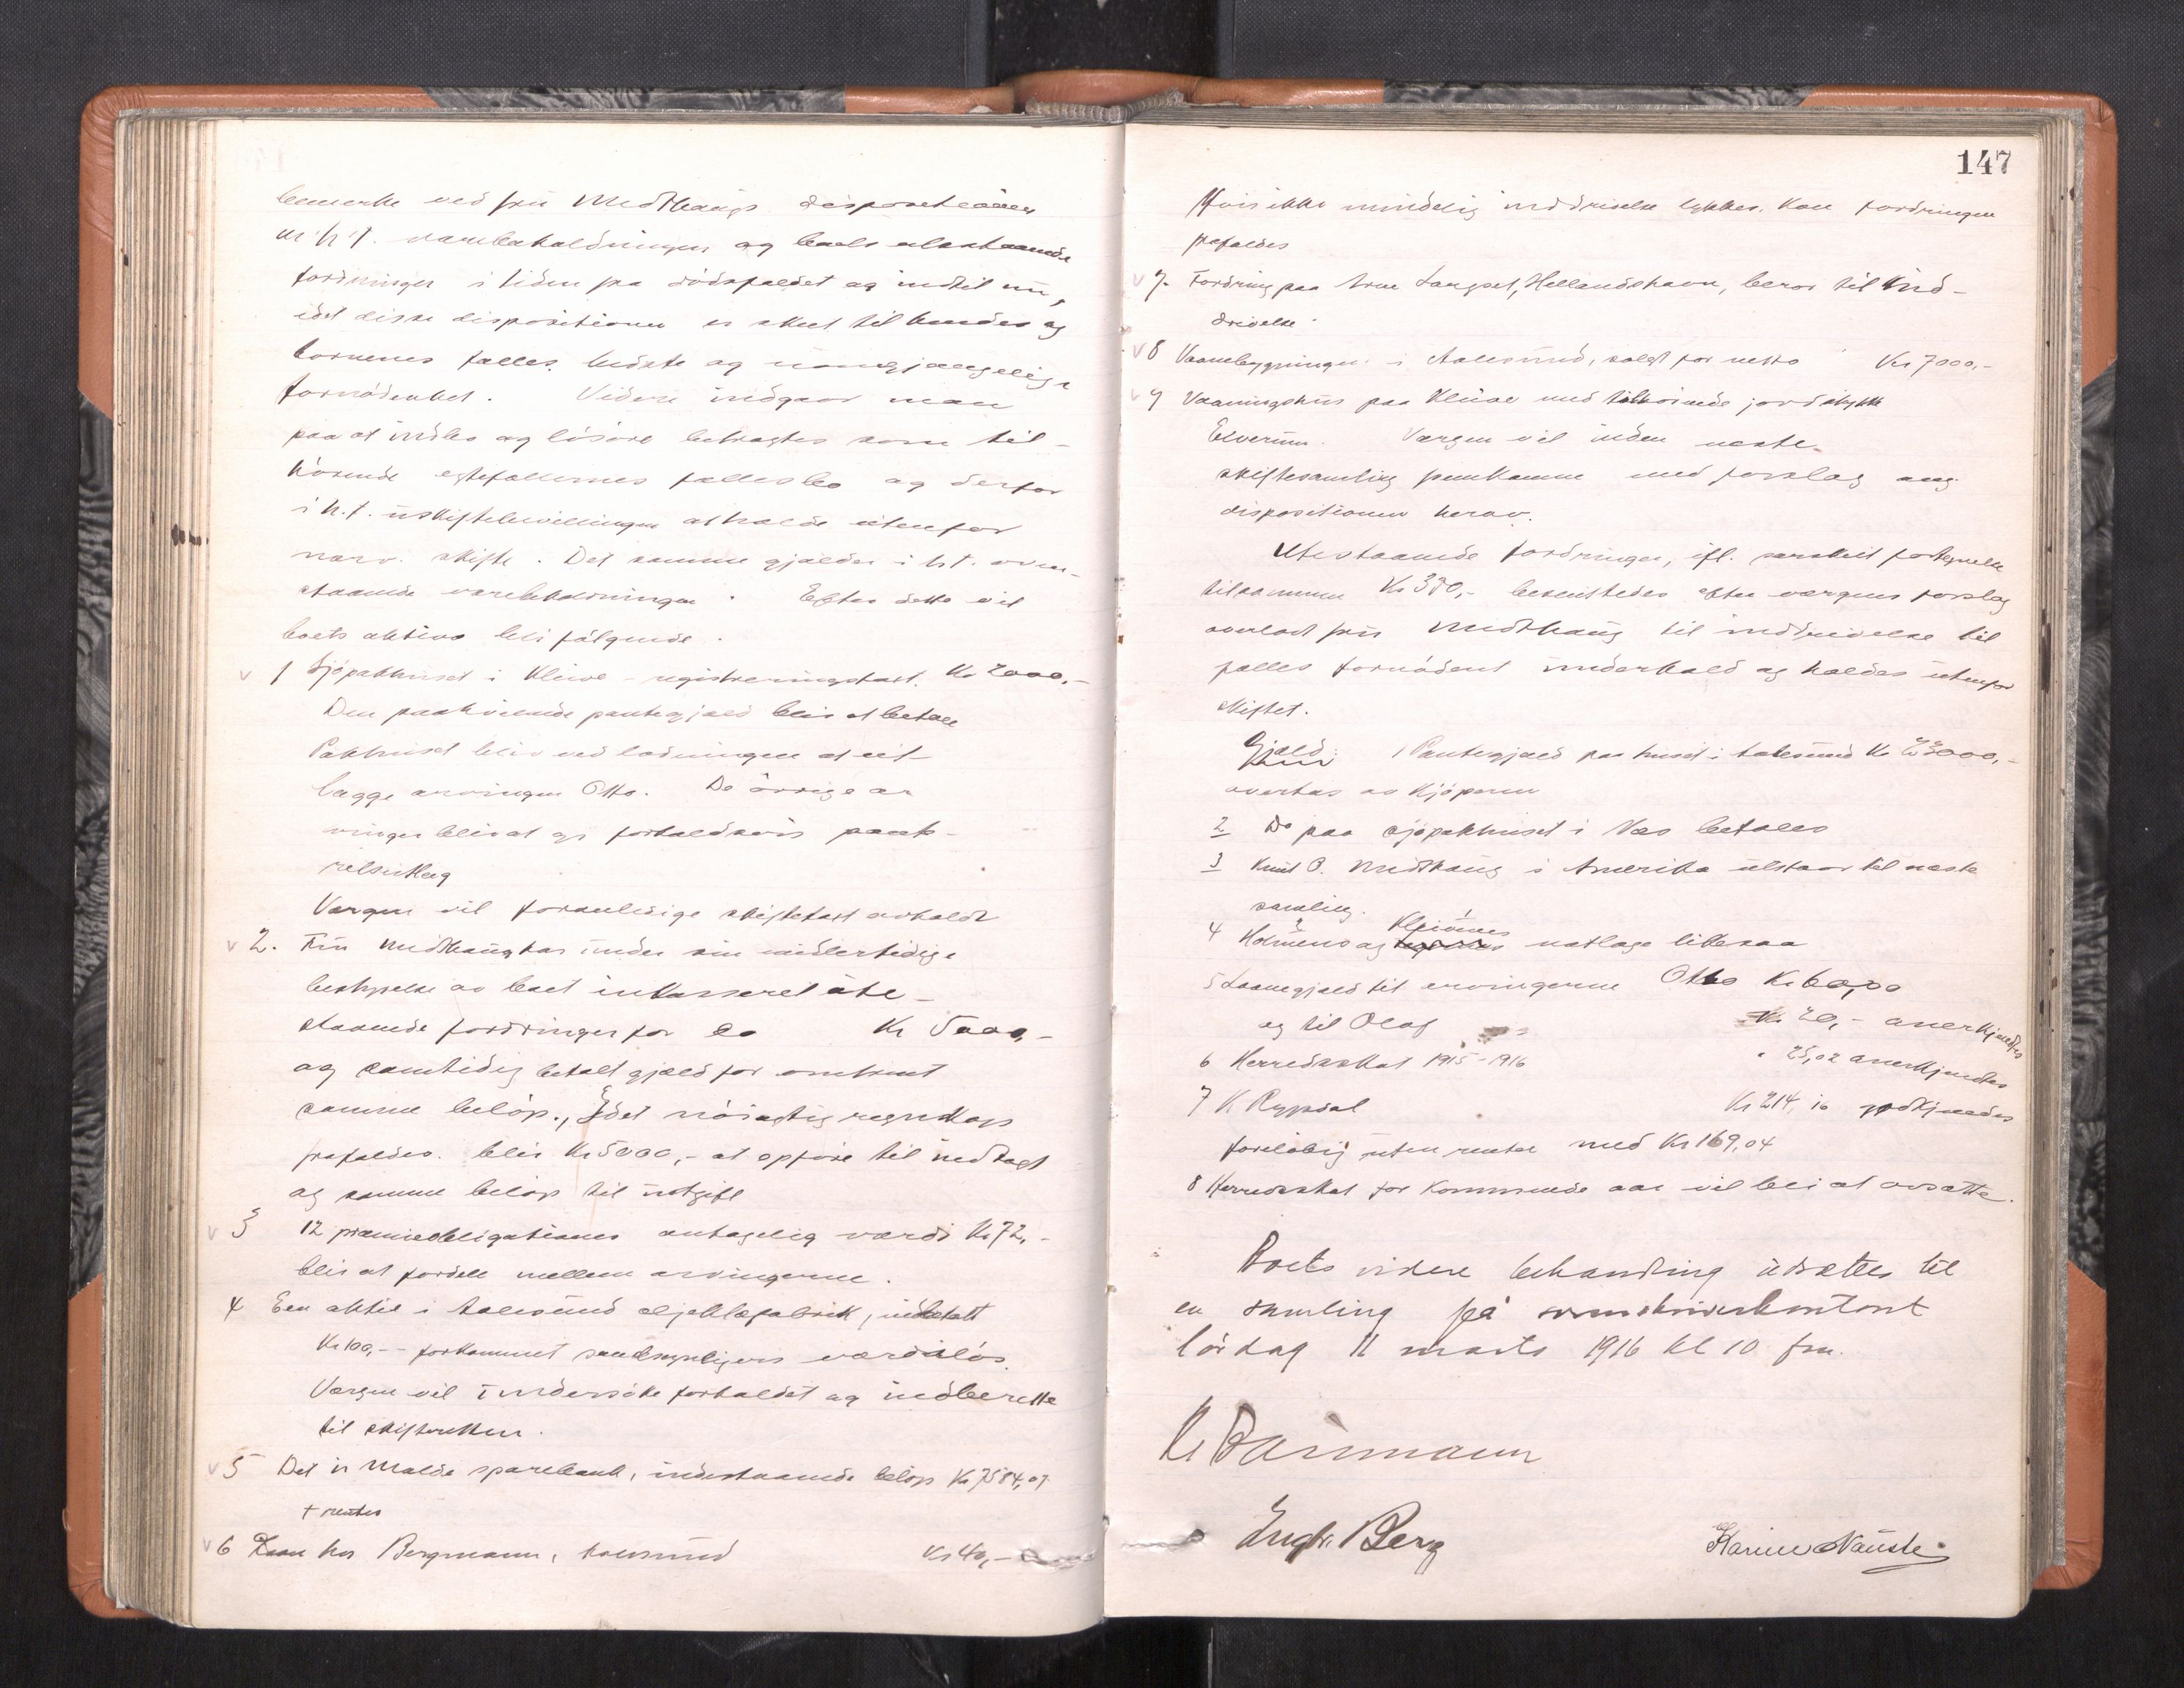 bemerke ved fru Midthaugs dispositioner
m. h. t. varebeholdningen og boets utestaaende
fordringer i tiden fra dødsfaldet og indtil nu,
idet disse dispositioner er skeet til hendes og
barnenes fælles bedste og uomgjængelige
fornødenhet. Videre indgaar man
paa at indbo og løsøre betragtes som til-
hørende egtefællernes fællesbo og derfor
i h. t. uskiftebevillingen at holde utenfor
nærv. skifte. Det samme gjælder i h. t. oven-
staaende varebeholdninger. Efter dette vil
boets aktiva bli følgende.
1 Sjøpakhuset i Kleive - registreringstakst. Kr 2000,-
Den paahvilende pantegjæld blir at betale
Pakhuset blir ved lodningen at ut-
lægge arvingen Otto. De øvrige ar
vinger blir at gi forholdsvis pante-
Værgen vil foranledige skiftetakst avholdt
2. Fru Midthaug har under sin midlertidige
bestyrelse av boet inkasseret ute-
staaende fordringer for ca Kr 5000,-
og samtidig betalt gjæld for omtrent
samme beløp., Idet nøiagtig regnskap
frafaldes. blir Kr 5000,- at opføre til indtægt
og samme beløp til utgift
3 12 præmieobligationer antagelig værdi Kr 72,-
blir at fordele mellem arvingerne.
4 Een aktie i Aalesund oljeklæfabrik, indbetalt
Kr 100,- - forkommet sandsynligvis værdiløs.
Værgen vil undersøke forholdet og indberette
til skifteretten.
5 Det in Molde sparebank, indestaaende beløp Kr 7584,07
+ renter
6 Laan hos Bergmann, Aalesund Kr 40,-
147
Hvis ikke mindelig inddrivelse lykkes. kan fordringen
frafaldes
7. Fordring paa Arne Langset, Hellandshavn, beror til Ind-
drivelse.
8 Vaanebygningen i Aalesund, solgt for netto Kr 7000,-
9 Vaaningshus paa Kleive med tilhørende jordstykke
Elverum. Værgen vil inden næste
skiftesamling fremkomme med forslag ang.
dispositionen herav.
Utestaaende fordringer, ifl. særskilt fortegnelse
tilsammen Kr 370,- besluttedes efter værgens forslag
overlatt fru Midthaug til inddrivelse til
fælles fornødent underhold og holdes utenfor
skiftet.
Gjæld: 1 Pantegjæld paa huset i Aalesund Kr 23000,-
overtas av kjøperen
2 Do paa sjøpakhuset i Næs betales
3 Knut O. Midthaug i Amerika utstaar til næste
samling.
4 Holmens og Kleivnes natlage likesaa
5 Laanegjæld til arvingerne Otto Kr 60,00
og til Olaf Kr 20,- anerkjendtes
6 Herredsskat 1915-1916 " 25,02 anerkjendtes
7 K. Rypdal Kr 214,10 godkjendes
foreløbig uten renter med Kr 169,04
8 Herredsskat for kommende aar vil bli at avsætte.
Boets videre behandling udsættes til
en samling på sorenskriverkontoret
lørdag 11 marts 1916 kl 10 fm.
Engbr. Berg
Karine Nauste